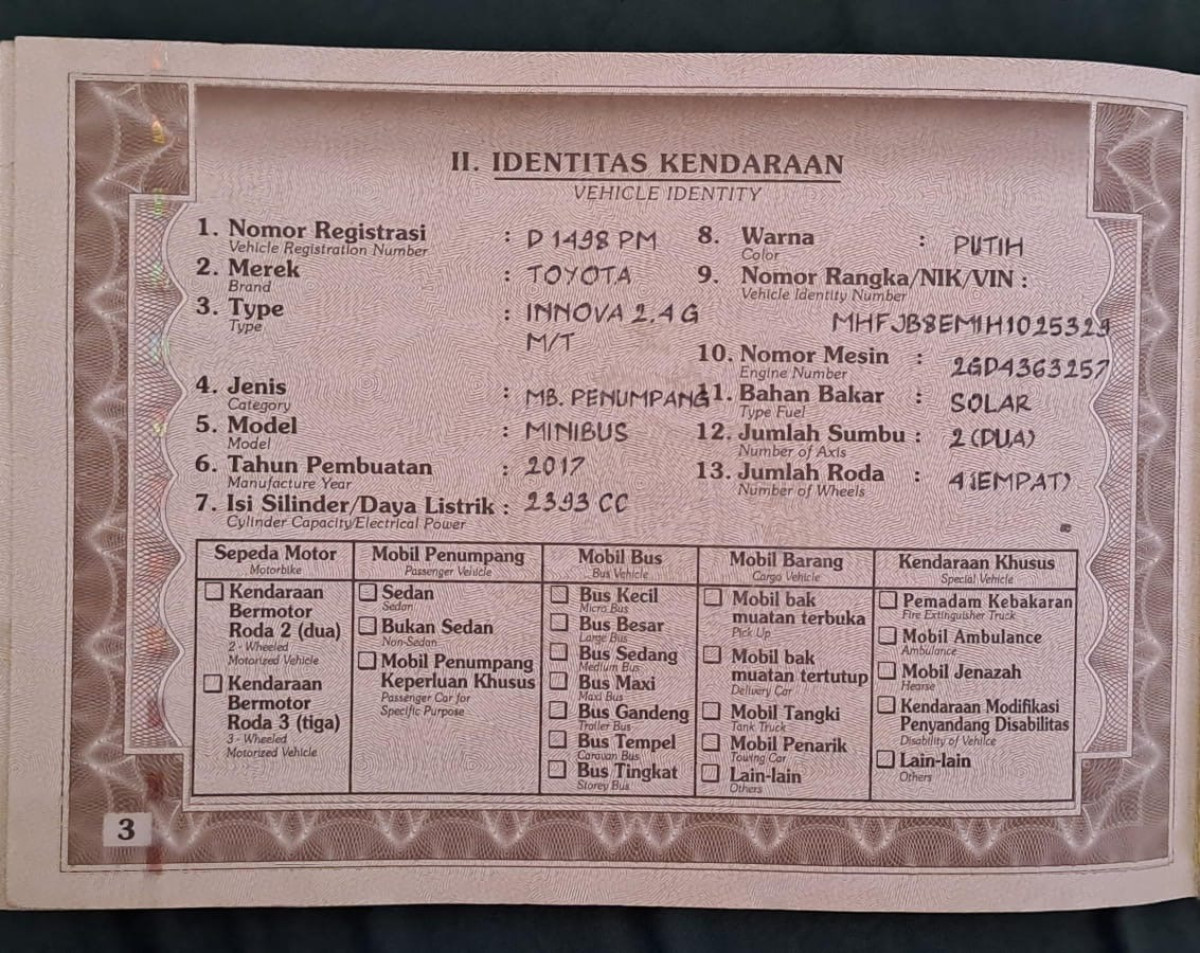 II. IDENTITAS KENDARAAN
VEHICLE IDENTITY
1. Nomor Registrasi : D 1498 PM
Vehicle Registration Number
2. Merek : TOYOTA
Brand
3. Type : INNOVA 2.4 G
Type
M/T
4. Jenis : MB. PENUMPANG
Category
5. Model : MINIBUS
Model
6. Tahun Pembuatan : 2017
Manufacture Year
7. Isi Silinder/Daya Listrik : 2393 CC
Cylinder Capacity/Electrical Power
8. Warna : PUTIH
Color
9. Nomor Rangka/NIK/VIN :
Vehicle Identity Number
MHFJB8EM1H1025329
10. Nomor Mesin : 2GD4363257
Engine Number
11. Bahan Bakar : SOLAR
Type Fuel
12. Jumlah Sumbu : 2 (DUA)
Number of Axis
13. Jumlah Roda : 4 (EMPAT)
Number of Wheels
Sepeda Motor
Motorbike
Kendaraan
Bermotor
Roda 2 (dua)
2 - Wheeled
Motorized Vehicle
Kendaraan
Bermotor
Roda 3 (tiga)
3 - Wheeled
Motorized Vehicle
Mobil Penumpang
Passenger Vehicle
Sedan
Sedan
Bukan Sedan
Non-Sedan
Mobil Penumpang
Keperluan Khusus
Passenger Car for
Specific Purpose
Mobil Bus
Bus Vehicle
Bus Kecil
Micro Bus
Bus Besar
Large Bus
Bus Sedang
Medium Bus
Bus Maxi
Maxi Bus
Bus Gandeng
Trailer Bus
Bus Tempel
Caravan Bus
Bus Tingkat
Storey Bus
Mobil Barang
Cargo Vehicle
Mobil bak
muatan terbuka
Pick Up
Mobil bak
muatan tertutup
Delivery Car
Mobil Tangki
Tank Truck
Mobil Penarik
Towing Car
Lain-lain
Others
Kendaraan Khusus
Special Vehicle
Pemadam Kebakaran
Fire Extinguisher Truck
Mobil Ambulance
Ambulance
Mobil Jenazah
Hearse
Kendaraan Modifikasi
Penyandang Disabilitas
Disability of Vehilce
Lain-lain
Others
3